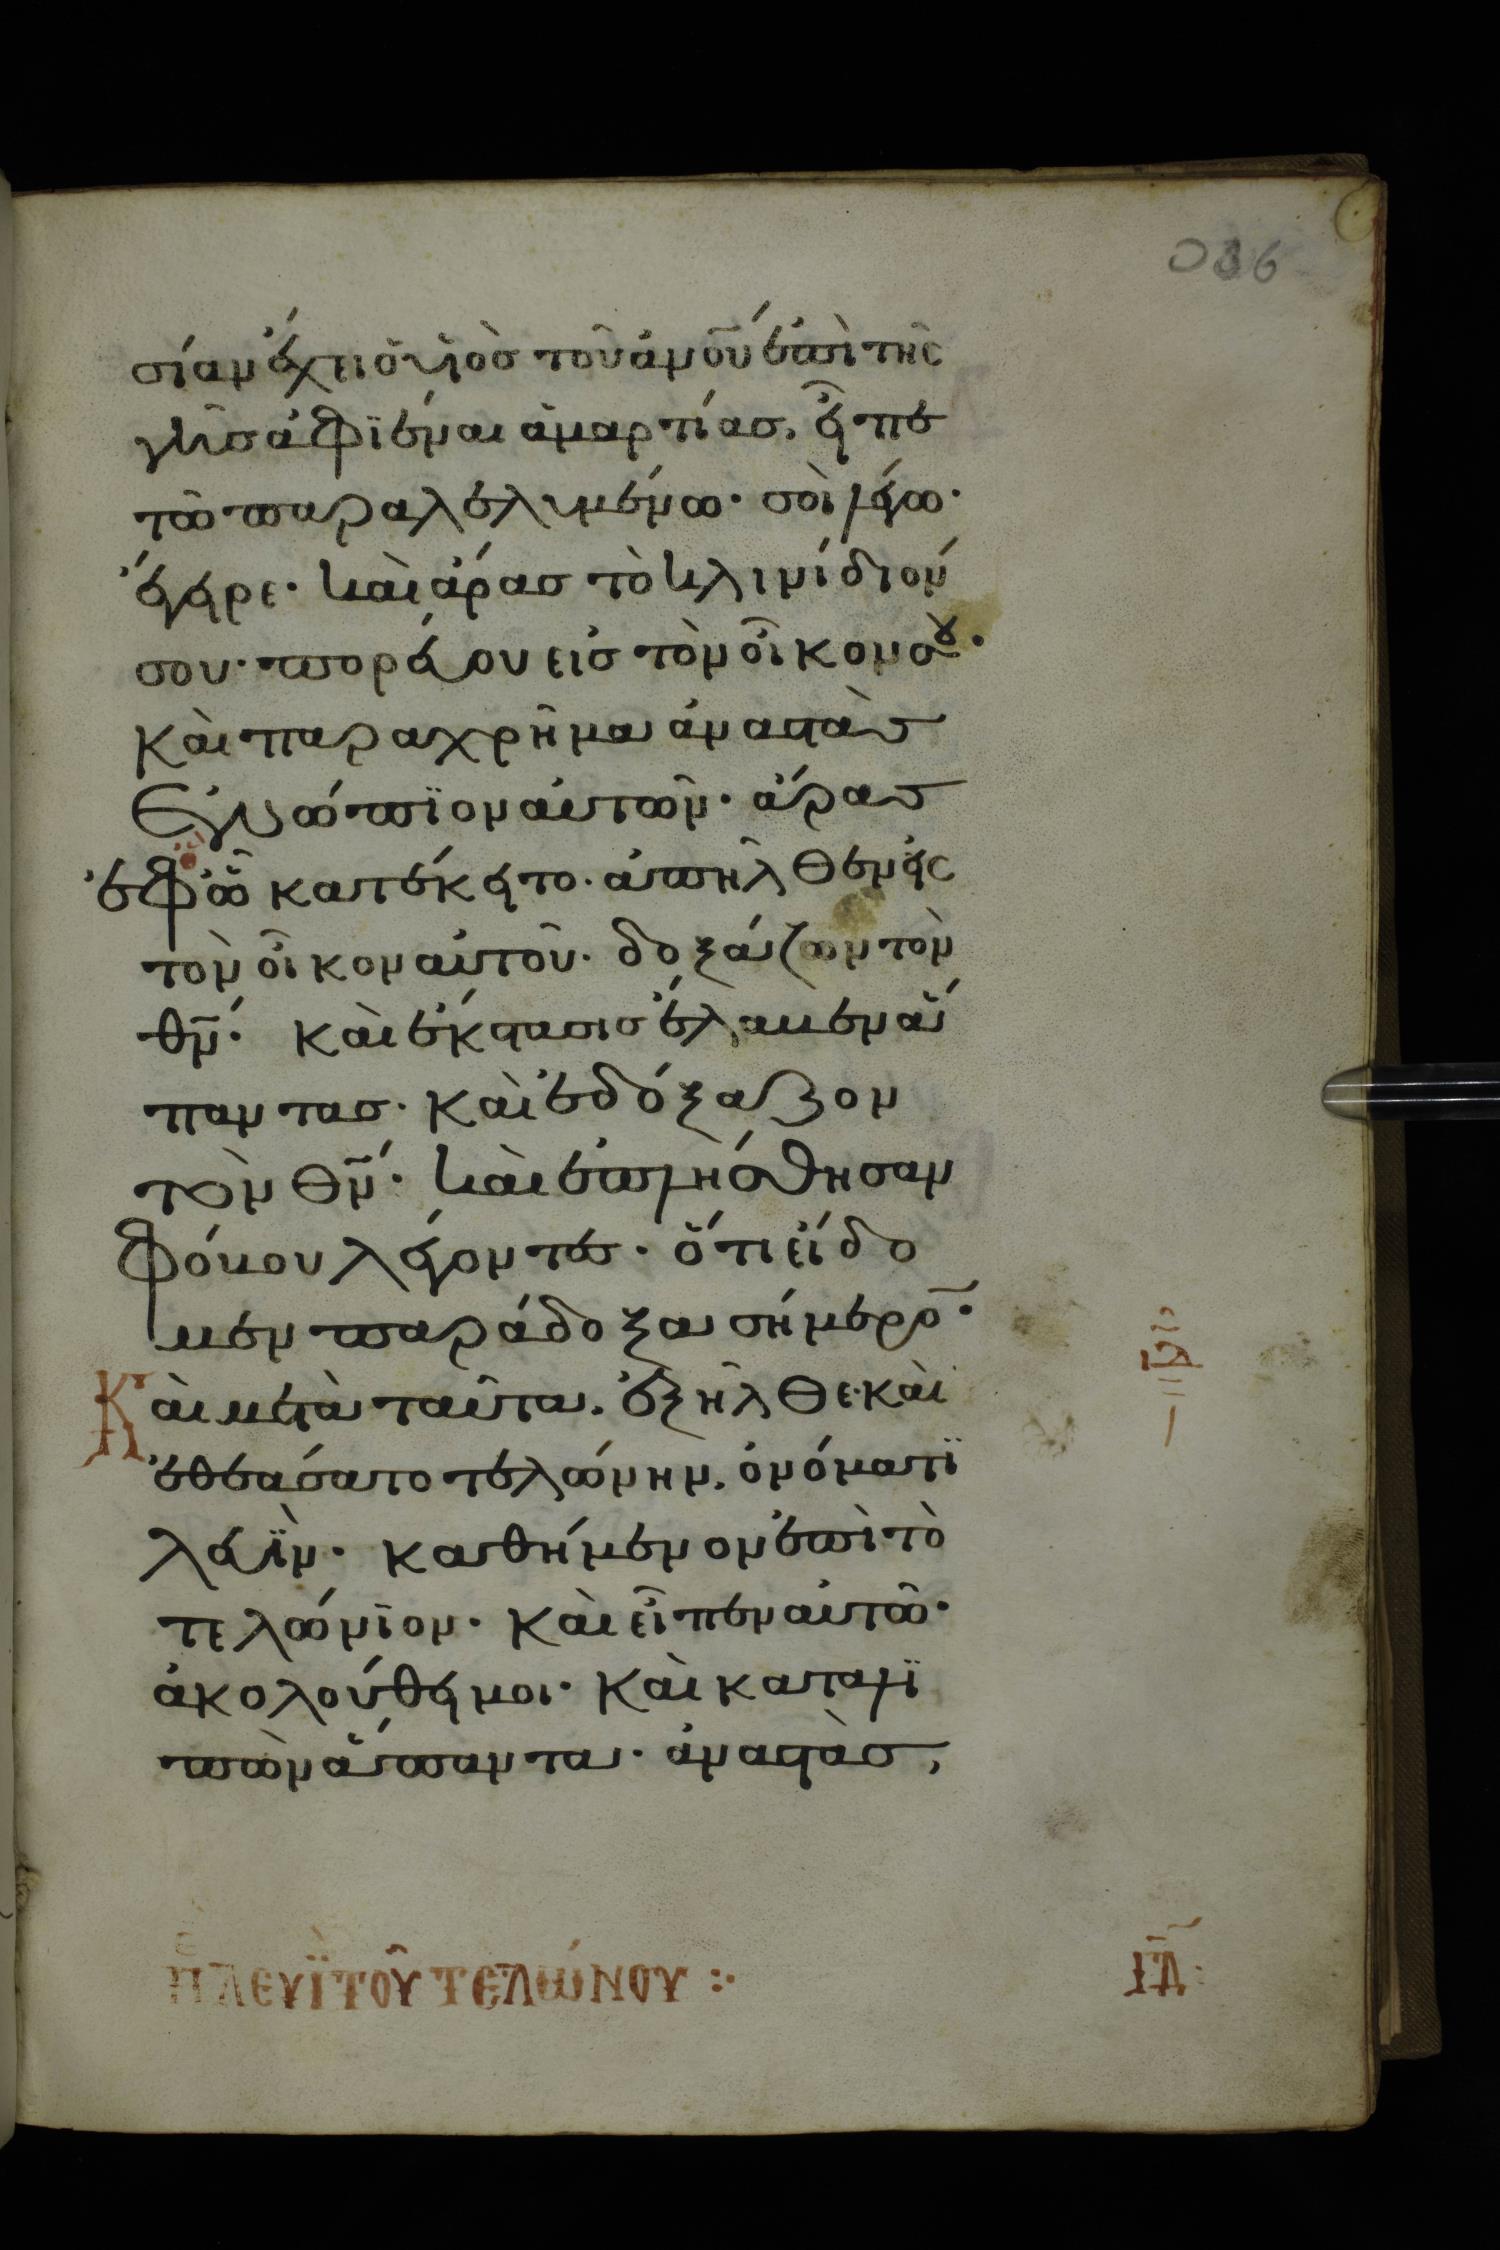 036
σίαν ἔχει ὁ υἱὸσ τοῦ ἀνοῦ ἐπὶ τῆς
γῆσ ἀφϊέναι ἁμαρτίασ, εἶπε
τῶ παραλελυμένω· σοὶ λέγω·
ἔγειρε· καὶ ἄρασ τὸ κλινίδιόν
σου· πορεύου εἰσ τὸν οἶκον σου·
Καὶ παραχρῆμα ἀναστὰσ
ἐνώπϊον αὐτῶν· ἄρασ
ἐφ' ᾧ κατέκειτο· ἀπῆλθεν εἰς
τὸν οἶκον αὐτοῦ· δοξάζων τὸν
θν̄· Καὶ ἔκστασισ ἔλαβεν ἅ
παντασ· Καὶ ἐδόξαζον
τὸν θν̄· καὶ ἐπλήσθησαν
φόβου λέγοντεσ· ὅτι εἴδο
μεν παράδοξα σήμερο̄·
Καὶ μετὰ ταῦτα, ἐξῆλθε· καὶ
ἐθεάσατο τελώνην, ὀνόματϊ
λευῒν· καθήμενον ἐπὶ τὸ
τελώνϊον· Καὶ εἶπεν αὐτῶ·
ἀκολούθει μοι· Καὶ καταλϊ
πὼν ἅπαντα· ἀναστὰσ,
ΛΕΥΪ ΤΟῦ ΤΕΛώΝΟΥ :·
ΙΔ̄